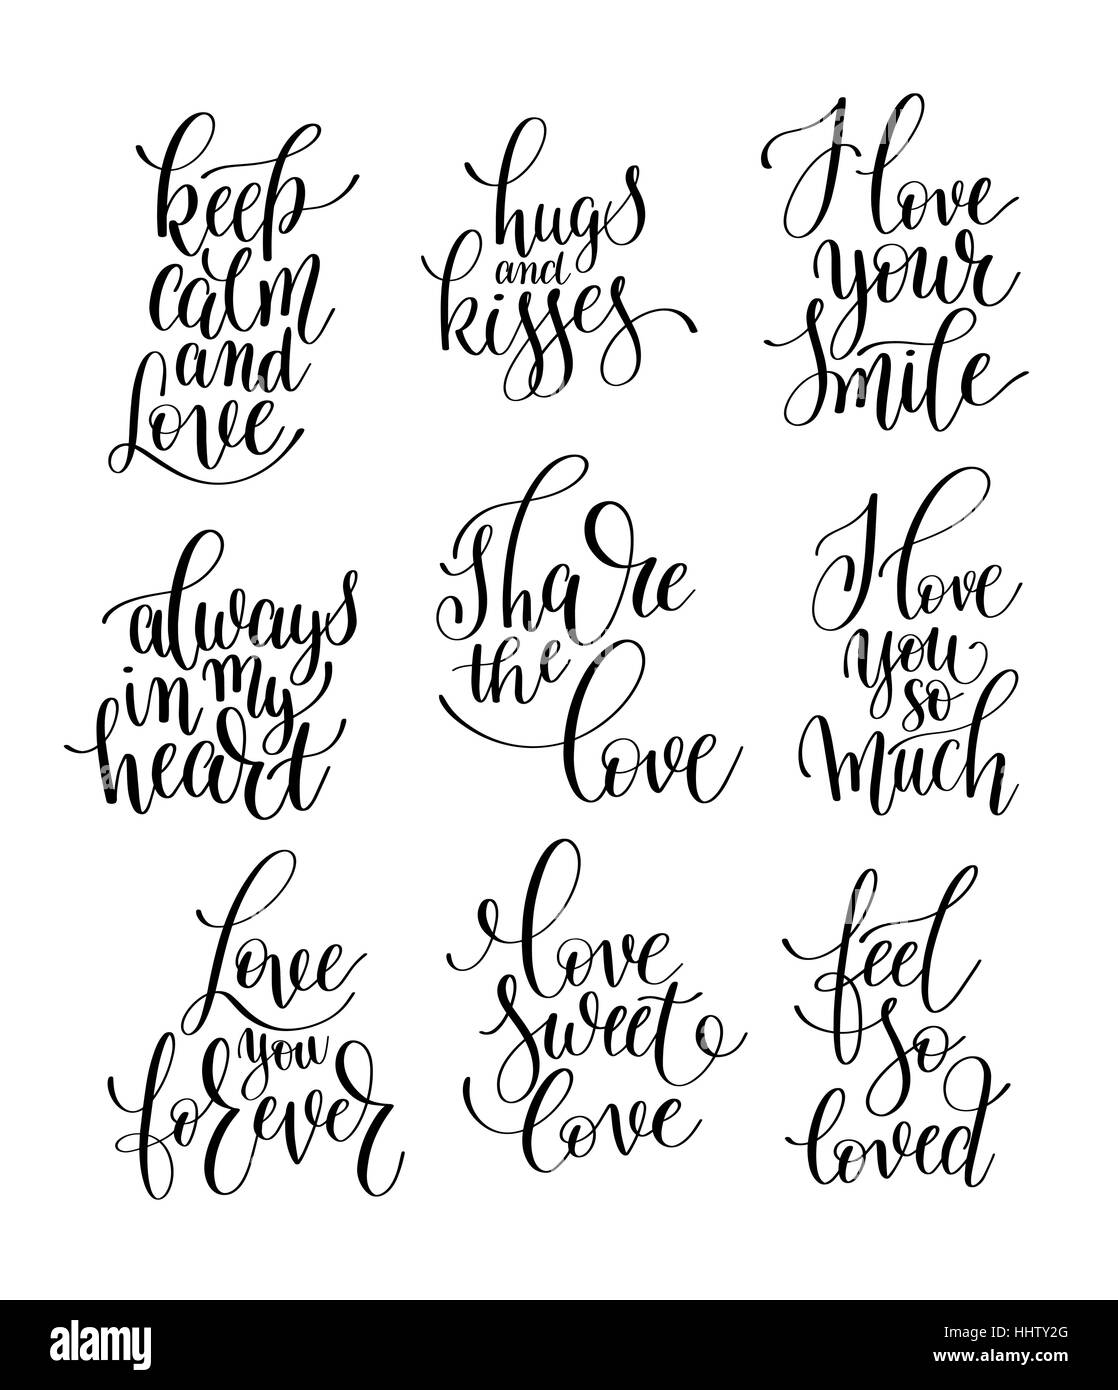 keep
calm
and
Love
hugs
and
kisses
I love
your
Smile
always
in my
heart
Share
the
love
I love
you
so
Much
Love
you
forever
love
sweet
love
feel
so
loved
alamy
Image ID: HHTY2G
www.alamy.com